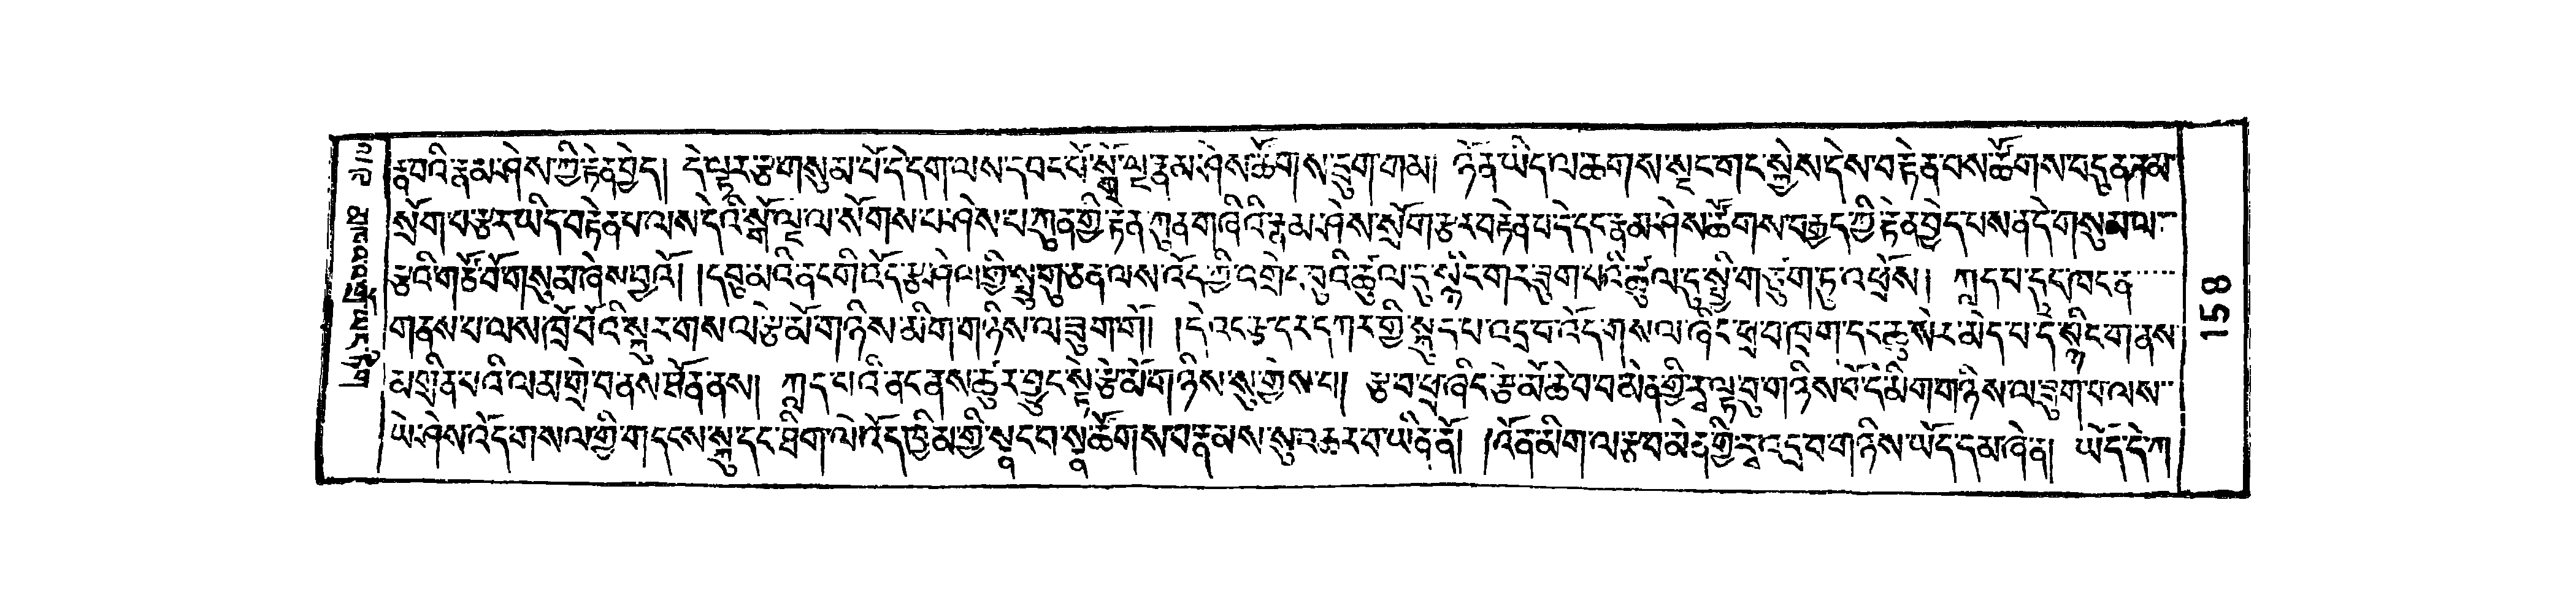 རྣ་བའི་རྣམ་ཤེས་ཀྱི་རྟེན་བྱེད། དེ་ལྟར་རྩ་གསུམ་པོ་དེ་དག་ལས་དབང་པོ་སྒོ་ལྔ་རྣམ་ཤེས་ཚོགས་དྲུག་གམ། ཉོན་ཡིད་ལ་ཆགས་སྡང་གང་སྐྱེས་དེས་བརྟེན་པས་ཚོགས་བདུན་ནམ་
སྲོག་པ་རྩར་ཡིད་བརྟེན་པ་ལས་དེའི་སྒོ་ལྔ་ལ་སོགས་པ་ཤེས་པ་ཀུན་གྱི་རྟེན་ཀུན་གཞིའི་རྣམ་ཤེས་སྲོག་རྩར་བརྟེན་པ་དེ་དང་རྣམ་ཤེས་ཚོགས་བརྒྱད་ཀྱི་རྟེན་བྱེད་པས་ན་དེ་གསུམ་ལ་
རྩའི་གཙོ་བོ་གསུམ་ཞེས་བྱའོ། །དབུ་མའི་ནང་གི་འོད་རྩ་ཤེལ་གྱི་སྦུ་གུ་ཅན་ལས་འོད་ཀྱི་འགྲེང་བུའི་ཚུལ་དུ་སྙིང་གར་ཟུག་པའི་ཚུལ་དུ་སྤྱི་གཙུག་ཏུ་འཕྲོས། ཀླད་པ་དུང་ཁང་ན་
གནས་པ་ལས་ཁྲོ་བོའི་སྐུར་གསལ་རྩེ་མོ་གཉིས་མིག་གཉིས་ལ་ཟུག་གོ། །དེ་འང་རྩ་དར་དཀར་གྱི་སྐུད་པ་འདྲ་བ་འོད་གསལ་ཞིང་ཕྲ་བ་ཁྲག་དང་ཆུ་སེར་མེད་པ་དེ་སྙིང་ག་ནས་
མགྲིན་པའི་ལམ་གྲེ་བ་ནས་ཐོན་ནས། ཀླད་པའི་ནང་ནས་ཚུར་བྱུང་སྟེ་རྩེ་མོ་གཉིས་སུ་གྱེས་པ། རྩ་བ་ཕྲ་ཞིང་རྩེ་མོ་ཆེ་བ་བ་མེན་གྱི་རྭ་ལྟ་བུ་གཉིས་པོ་དེ་མིག་གཉིས་ལ་ཟུག་པ་ལས་
ཡེ་ཤེས་འོད་གསལ་གྱི་གདངས་སྐུ་དང་ཐིག་ལེ་འོད་ཁྱིམ་གྱི་སྣང་བ་སྣ་ཚོགས་པ་རྣམས་སུ་འཆར་བ་ཡིན་ནོ། །འོ་ན་མིག་ལ་རྩ་བ་མེན་གྱི་རྭ་འདྲ་བ་གཉིས་ཡོད་དམ་ཞེ་ན། ཡོད་དེ་ཀ
158